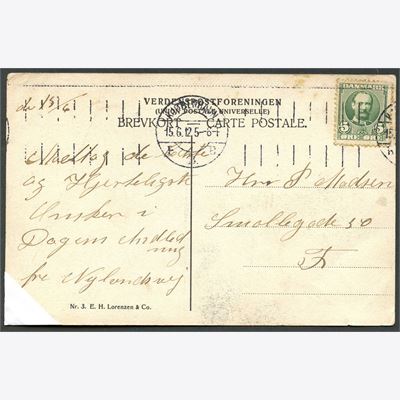 d. 15/6
VERDENSPOSTFORENINGEN
(UNION POSTALE UNIVERSELLE)
BREVKORT — CARTE POSTALE.
KJØBENHAVN
15.6.12.5-6 E
B
DANMARK
5 ØRE 5
Modtag de bedste
og Hjerteligste
Ønsker i
Dagens Anled
ning
fra Nylandsvej
Hrr P Madsen
Smallegade 50
F.
Nr. 3. E. H. Lorenzen & Co.